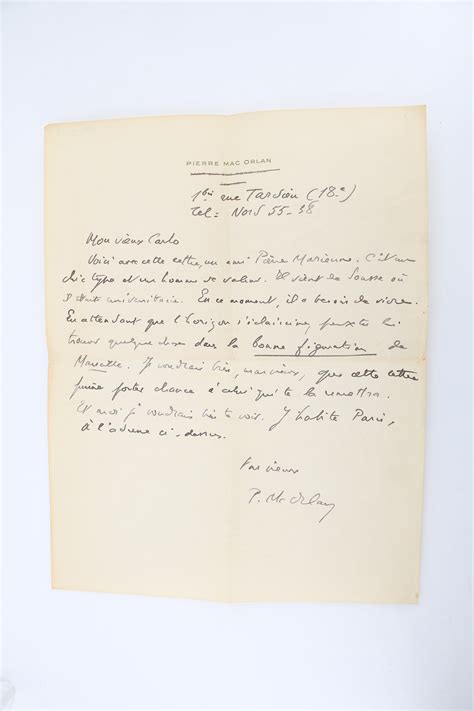 PIERRE MAC ORLAN
1bis rue Tardieu (18e)
Tel = Nord 55-38
Mon vieux Carlo
Voici avec cette lettre, un ami Pierre Marienne. C'est un
chic type et un homme de valeur. Il vient de Sousse où
il était universitaire. En ce moment, il a besoin de vivre.
En attendant que l'horizon s'éclaircisse, peux-tu lui
trouver quelque chose dans la bonne figuration de
Marcelle. Je voudrais bien, mon vieux, que cette lettre
puisse porter chance à celui qui te la remettra.
Et moi je voudrais bien te voir. J'habite Paris,
à l'adresse ci-dessus.
Ton vieux
P. Mac Orlan